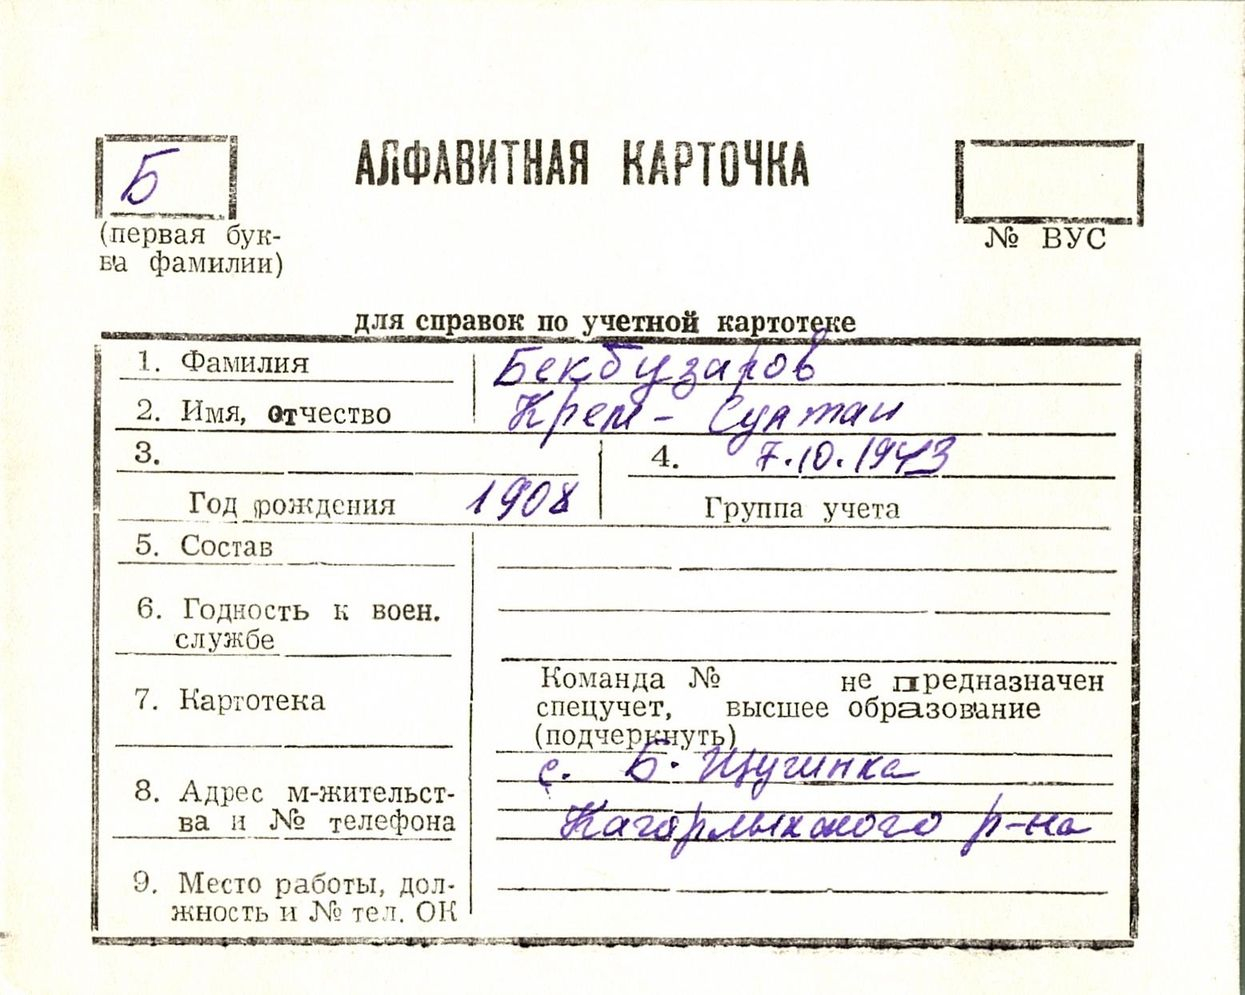 Б
АЛФАВИТНАЯ КАРТОЧКА
(первая бук-
ва фамилии)
№ ВУС
для справок по учетной картотеке
1. Фамилия Бекбузаров
2. Имя, отчество Крем-Султан
3. 4. 7.10.1943
Год рождения 1908 Группа учета
5. Состав
6. Годность к воен.
службе
7. Картотека
Команда № не предназначен
спецучет, высшее образование
(подчеркнуть)
с. Б. Щучинка
8. Адрес м-жительст-
ва и № телефона Кагарлыкского р-на
9. Место работы, дол-
жность и № тел. ОК